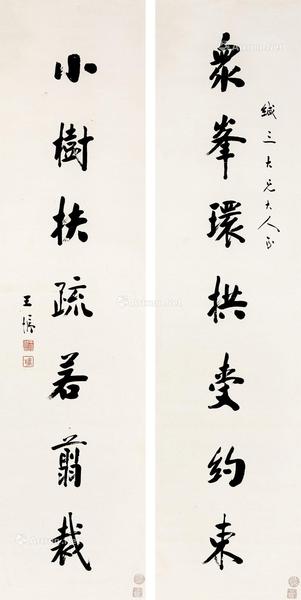 眾峯環拱受約束
緘三大兄大人正
小樹扶疏若翦裁
王脩